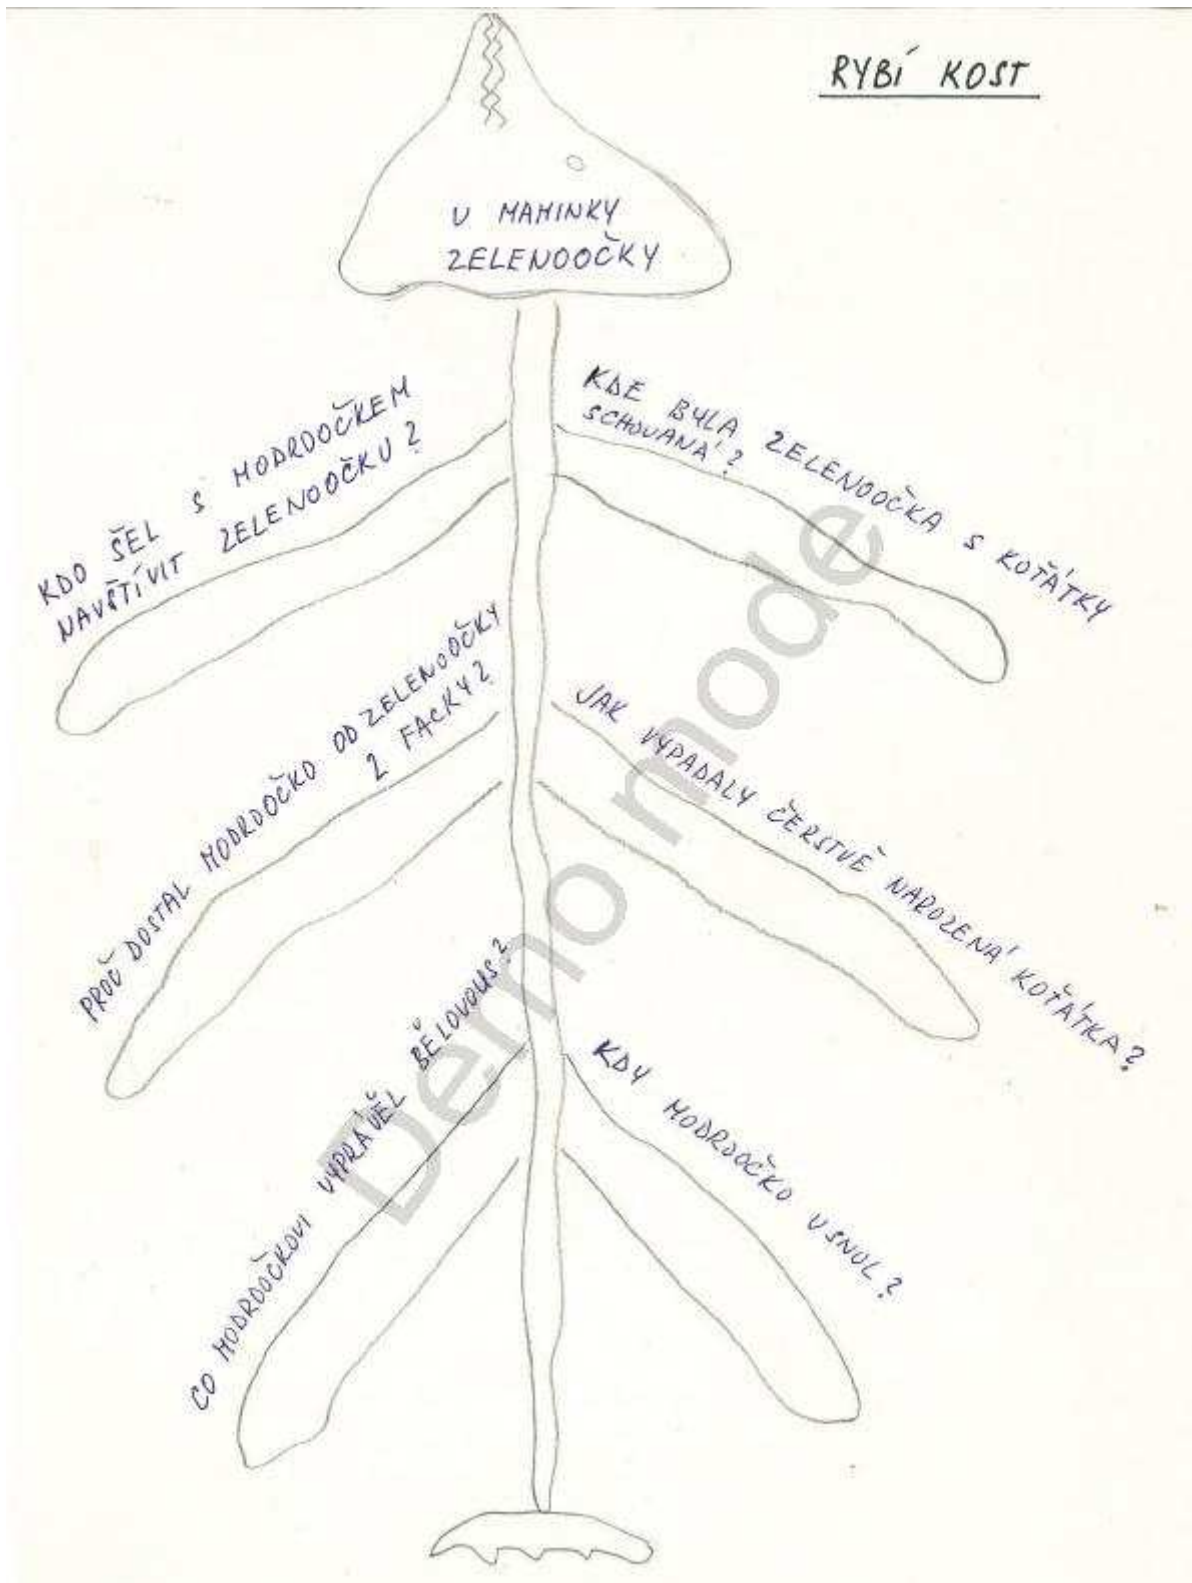 RYBÍ KOST
U MAMINKY
ZELENOOČKY
KDO ŠEL S MODROOČKEM
NAVŠTÍVIT ZELENOOČKU?
KDE BYLA ZELENOOČKA S KOŤÁTKY
SCHOVANÁ?
PROČ DOSTAL MODROOČKO OD ZELENOOČKY
2 FACKY?
JAK VYPADALY ČERSTVĚ NAROZENÁ KOŤÁTKA?
CO MODROOČKOVI VYPRÁVĚL BĚLOVOUS?
KDY MODROOČKO USNUL?
Demo mode